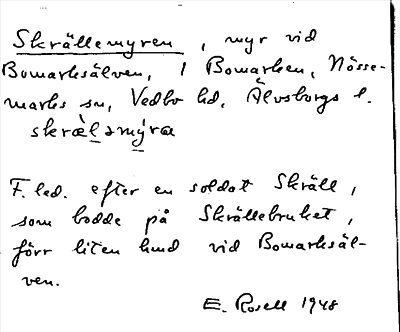 Skrällemyren, myr vid
Bomarksälven, i Bomarken, Nösse-
marks sn, Vedbo hd, Älvsborgs l.
skræ̀l̲əmý̲ra
F. led. efter en soldat Skräll,
som bodde på Skrällebruket,
förr liten lund vid Bomarksäl-
ven.
E. Rosell 1948